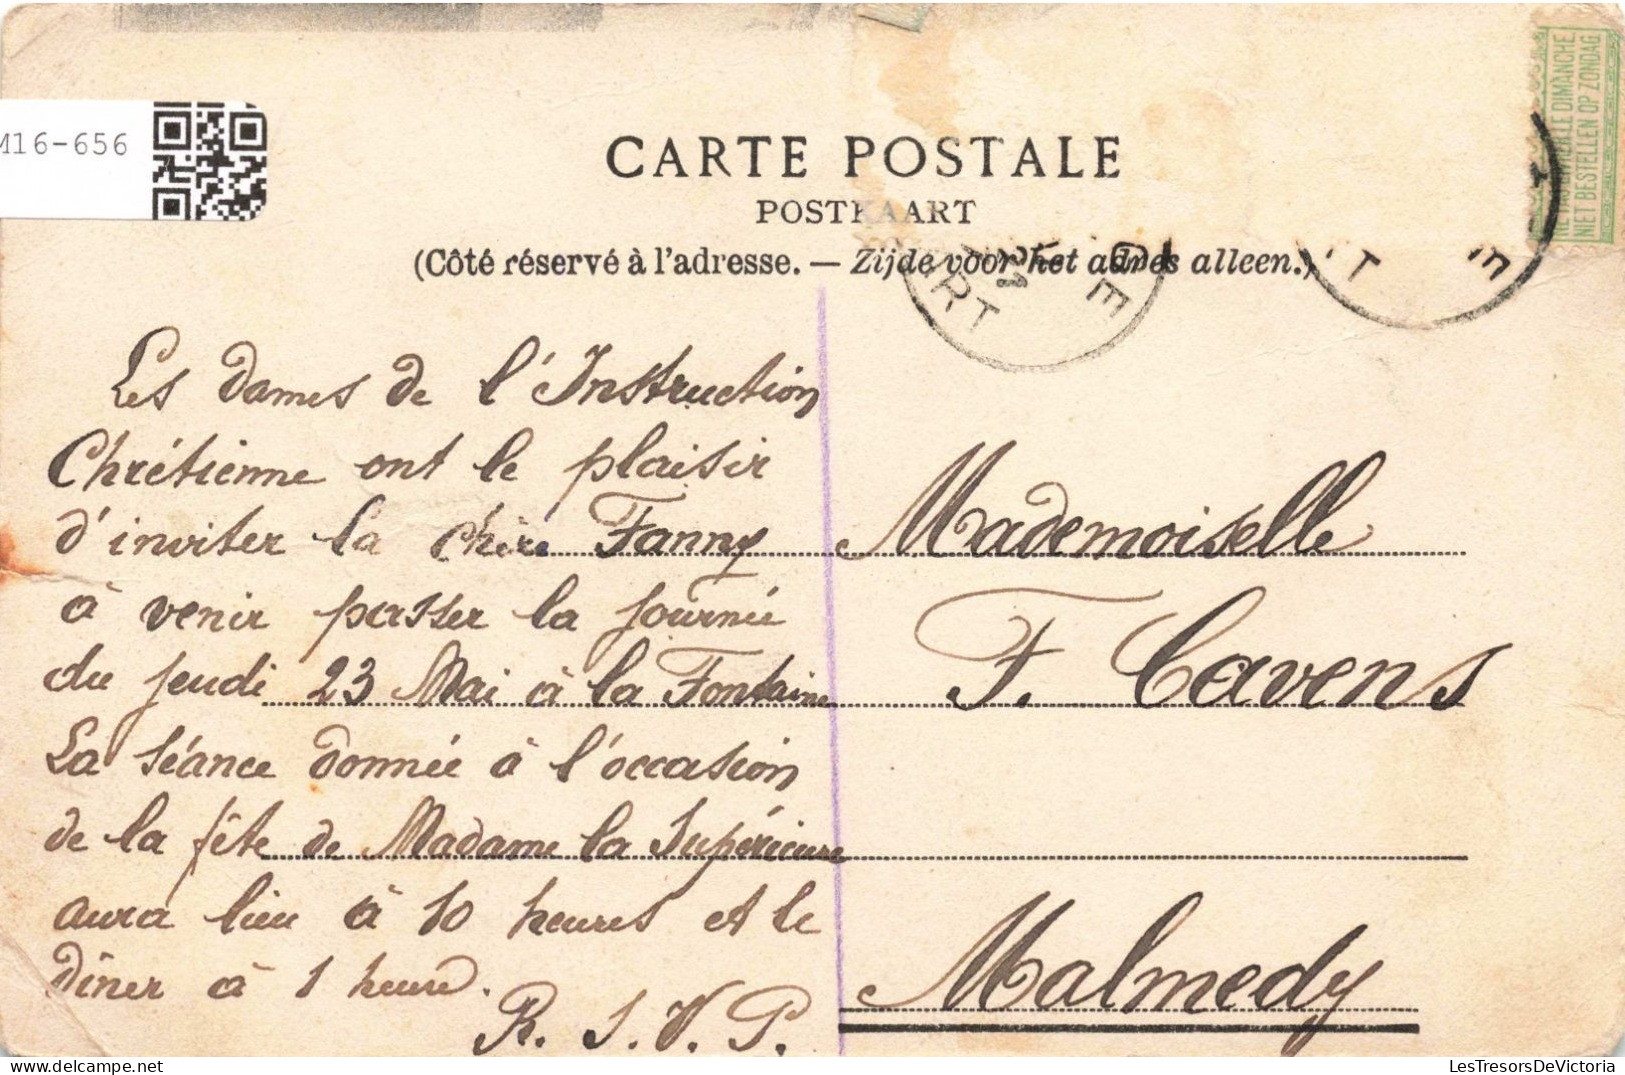 M16-656
NE PAS LIVRER LE DIMANCHE
NIET BESTELLEN OP ZONDAG
CARTE POSTALE
POSTKAART
(Côté réservé à l'adresse. — Zijde voor het adres alleen.)
Les dames de l'Instruction
Chrétienne ont le plaisir
d'inviter la chère Fanny
à venir passer la journée
du jeudi 23 Mai à la Fontaine
La séance donnée à l'occasion
de la fête de Madame la Supérieure
aura lieu à 10 heures et le
dîner à 1 heure.
R. S. V. P.
Mademoiselle
F. Cavens
Malmedy
LesTresorsDeVictoria